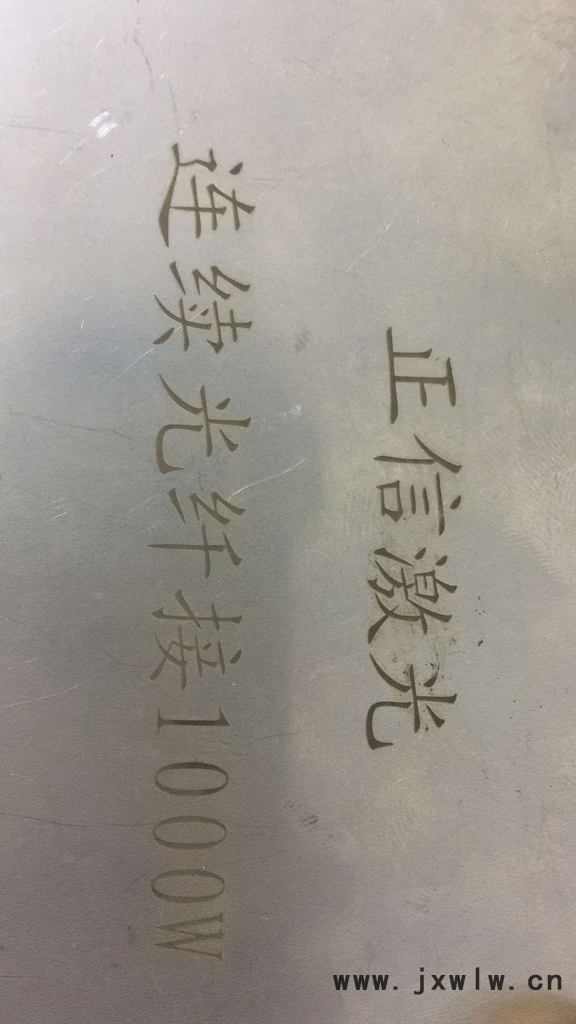 正信激光
连续光纤接1000W
www.jxwlw.cn